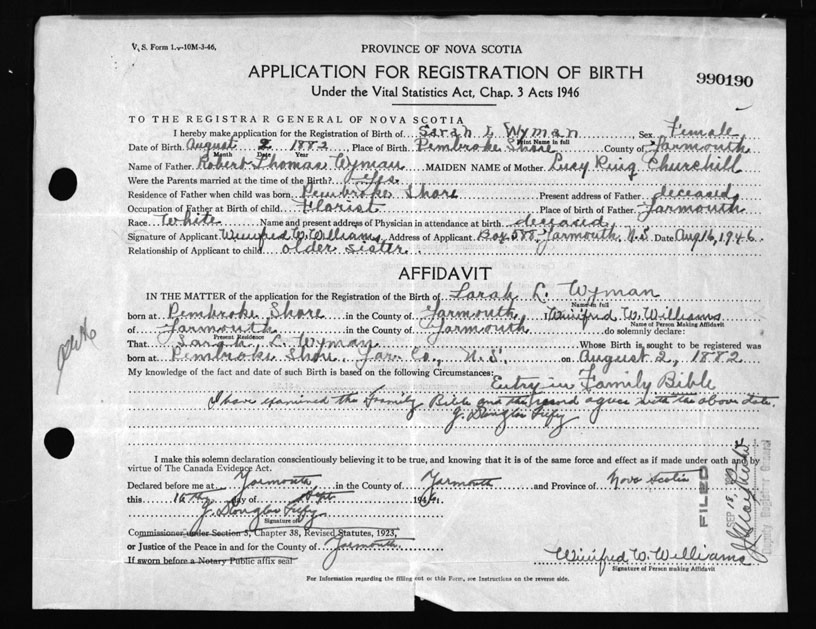 V. S. Form 1.-10M-3-46.
PROVINCE OF NOVA SCOTIA
APPLICATION FOR REGISTRATION OF BIRTH
990190
Under the Vital Statistics Act, Chap. 3 Acts 1946
TO THE REGISTRAR GENERAL OF NOVA SCOTIA
I hereby make application for the Registration of Birth of Sarah L Wyman Sex Female
Print Name in full
Date of Birth August 2 1882 Place of Birth Pembroke Shore County of Yarmouth
Month Date Year
Name of Father Robert Thomas Wyman MAIDEN NAME of Mother Lucy Churchill
Were the Parents married at the time of the Birth?
Residence of Father when child was born Pembroke Shore Present address of Father deceased
Occupation of Father at Birth of child Florist Place of birth of Father Yarmouth
Race White Name and present address of Physician in attendance at birth deceased
Signature of Applicant Winifred W. Williams Address of Applicant Box Yarmouth, N.S. Date Aug 16, 1946.
Relationship of Applicant to child older sister
AFFIDAVIT
IN THE MATTER of the application for the Registration of the Birth of Sarah L. Wyman
Name in full
born at Pembroke Shore in the County of Yarmouth I Winifred W. Williams
Name of Person Making Affidavit
of Yarmouth in the County of Yarmouth do solemnly declare:
Present Residence
That Sarah L. Wyman Whose Birth is sought to be registered was
born at Pembroke Shore, Yar. Co., N.S. on August 2, 1882
My knowledge of the fact and date of such Birth is based on the following Circumstances:
Entry in Family Bible
I have examined the Family Bible and the record agrees with the above date.
G. Douglas
I make this solemn declaration conscientiously believing it to be true, and knowing that it is of the same force and effect as if made under oath and by
virtue of The Canada Evidence Act.
Declared before me at Yarmouth in the County of Yarmouth and Province of Nova Scotia
this 16th day of Sept 194
G. Douglas
Signature of
Commissioner under Section 5, Chapter 38, Revised Statutes, 1923,
or Justice of the Peace in and for the County of Yarmouth
If sworn before a Notary Public affix seal
Winifred W. Williams
Signature of Person making Affidavit
FILED
SEP 18
Deputy Registrar General
For Information regarding the filling out of this Form, see Instructions on the reverse side.